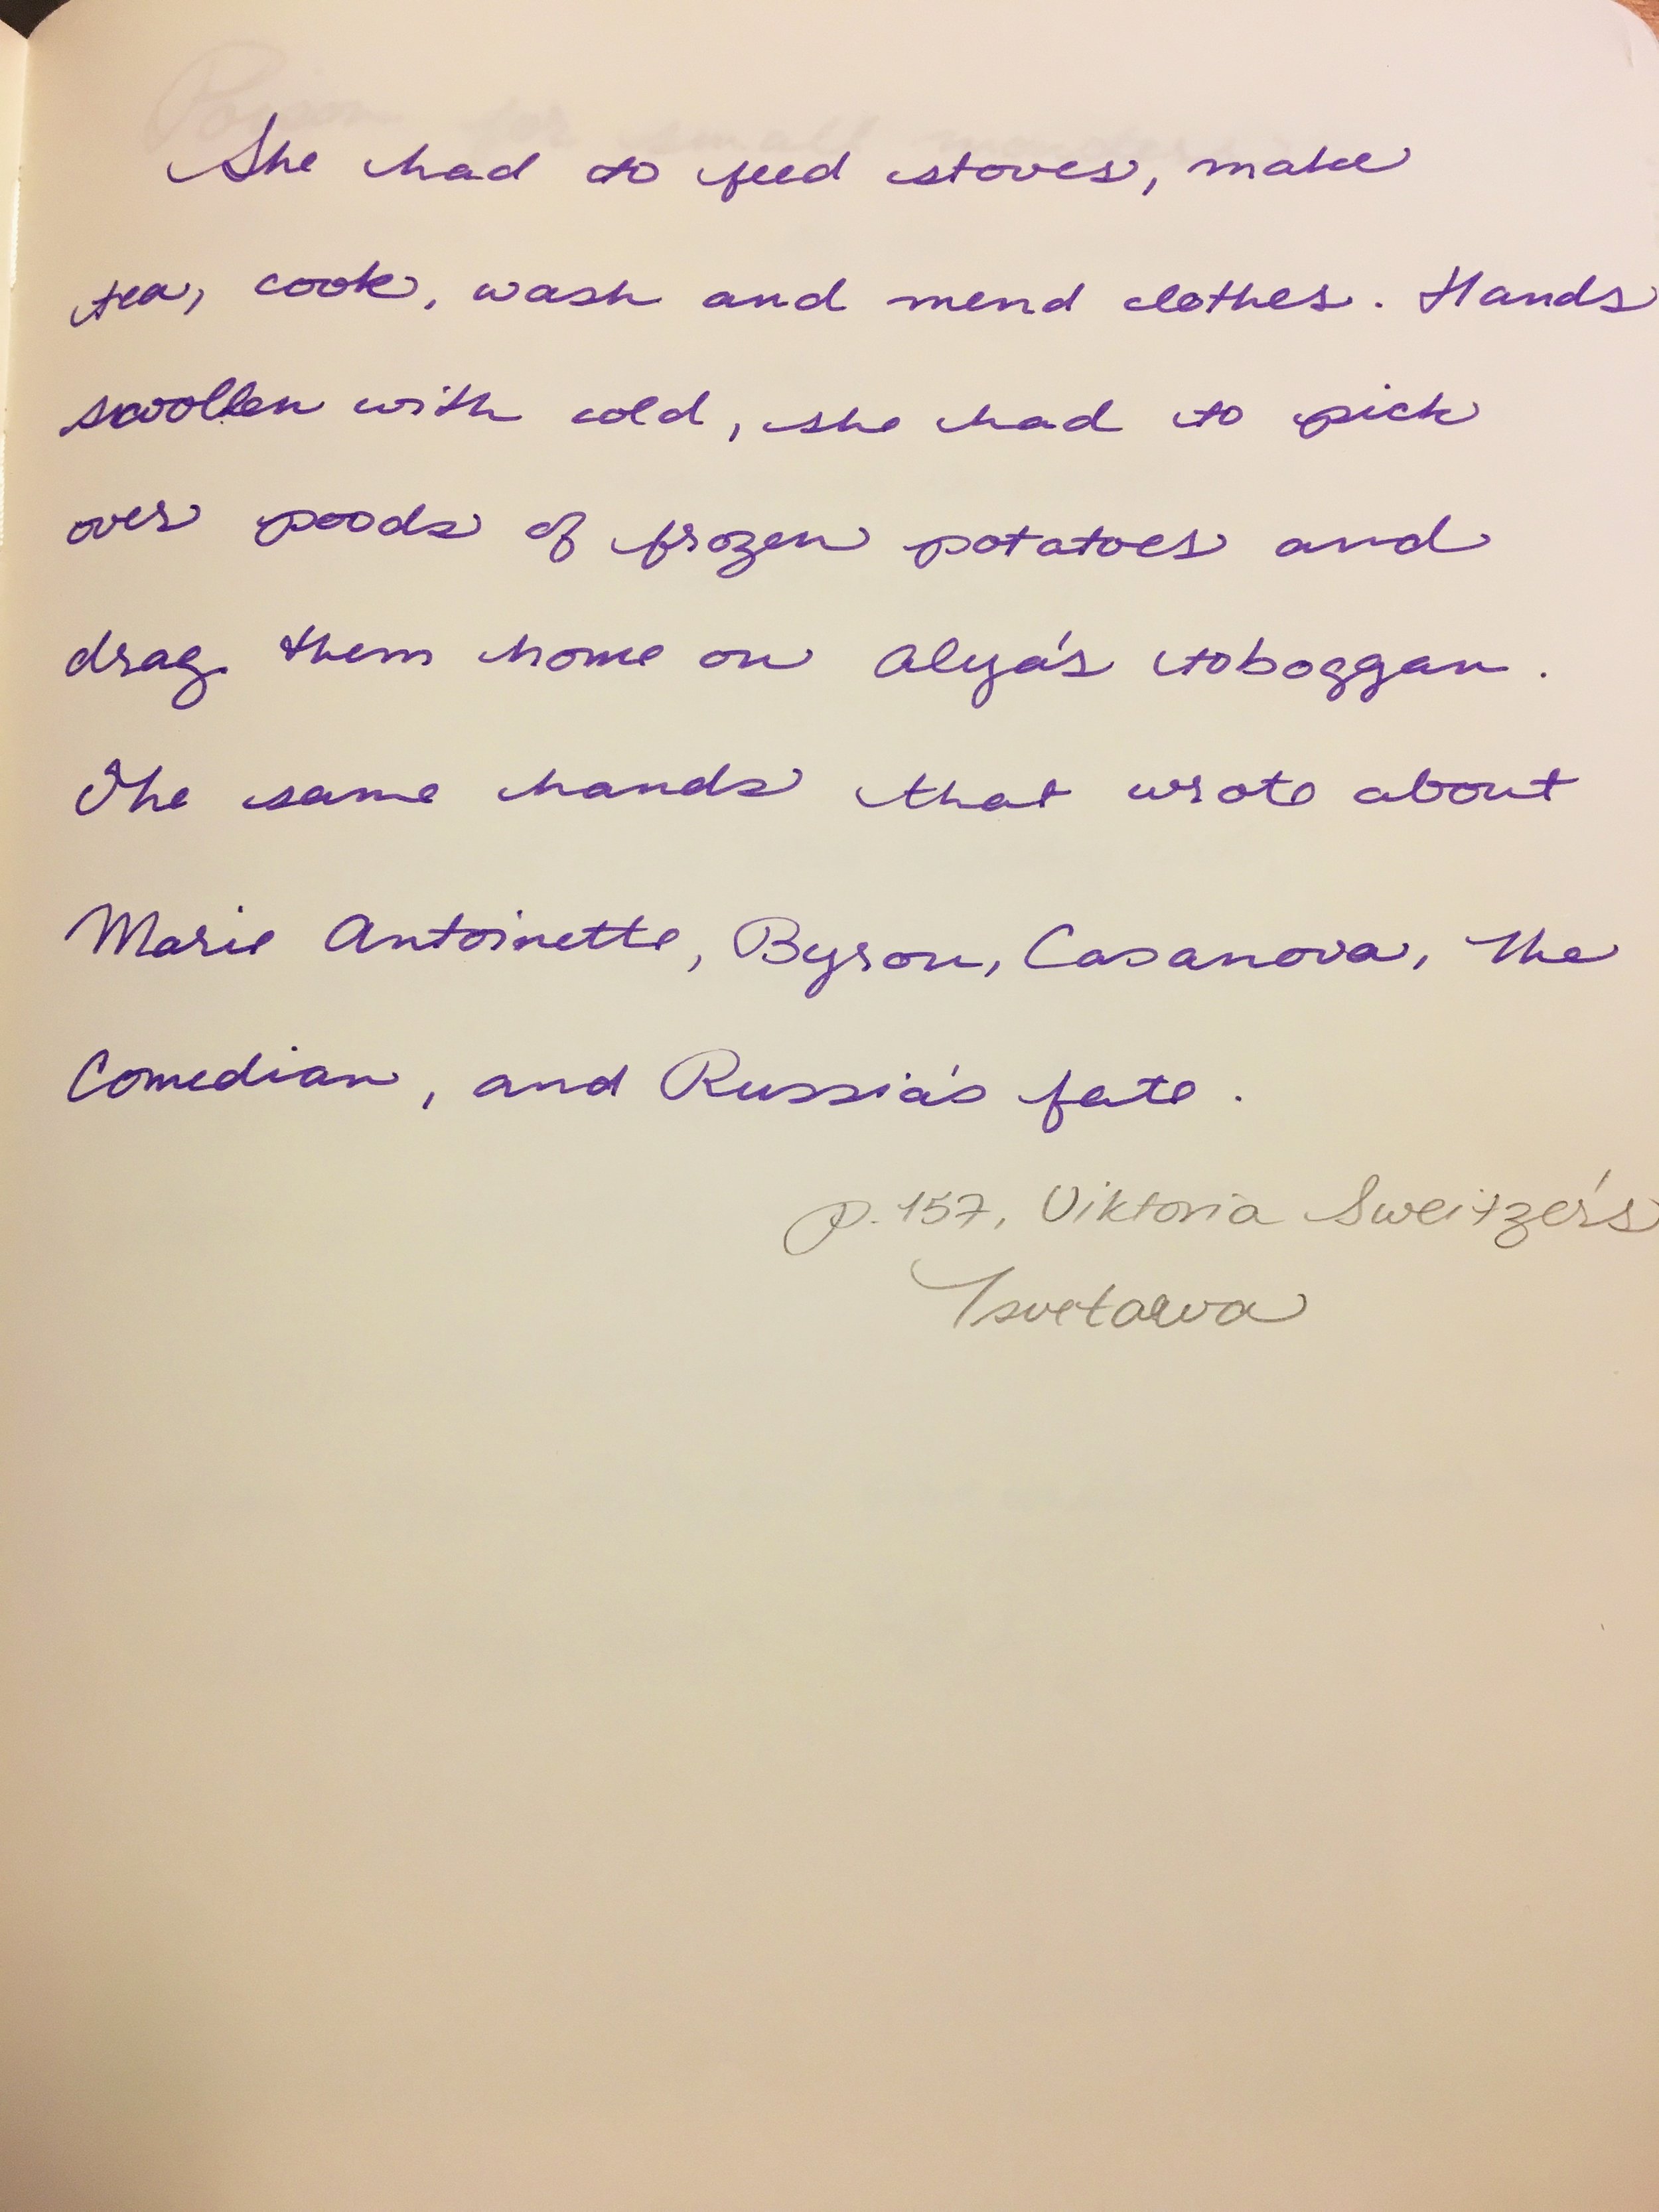 Poison for small
She had to feed stoves, make
tea, cook, wash and mend clothes. Hands
swollen with cold, she had to pick
over poods of frozen potatoes and
drag them home on Alya's toboggan.
The same hands that wrote about
Marie Antoinette, Byron, Casanova, the
Comedian, and Russia's fate.
p.157, Viktoria Sweitzer's
Tsvetaeva